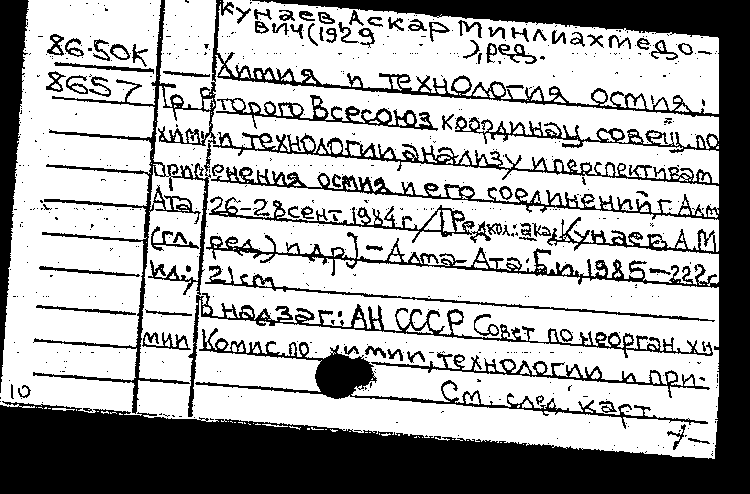 Кунаев, Аскар Минлиахмедо-
вич (1929 ), ред.
86-50к
8657
Химия и технология осмия:
Тр. Второго Всесоюз. координац. совещ. по
химии, технологии, анализу и перспективам
применения осмия и его соединений, г. Алма
Ата, 26-28 сент. 1984 г. / [Редкол.: акад. Кунаев А.М
(гл. ред.) и др.] - Алма-Ата: Б.и., 1985 - 222с
ил.; 21 см.
В надзаг.: АН СССР Совет по неорган. хи-
мии. Комис. по химии, технологии и при-
См. след. карт.
10